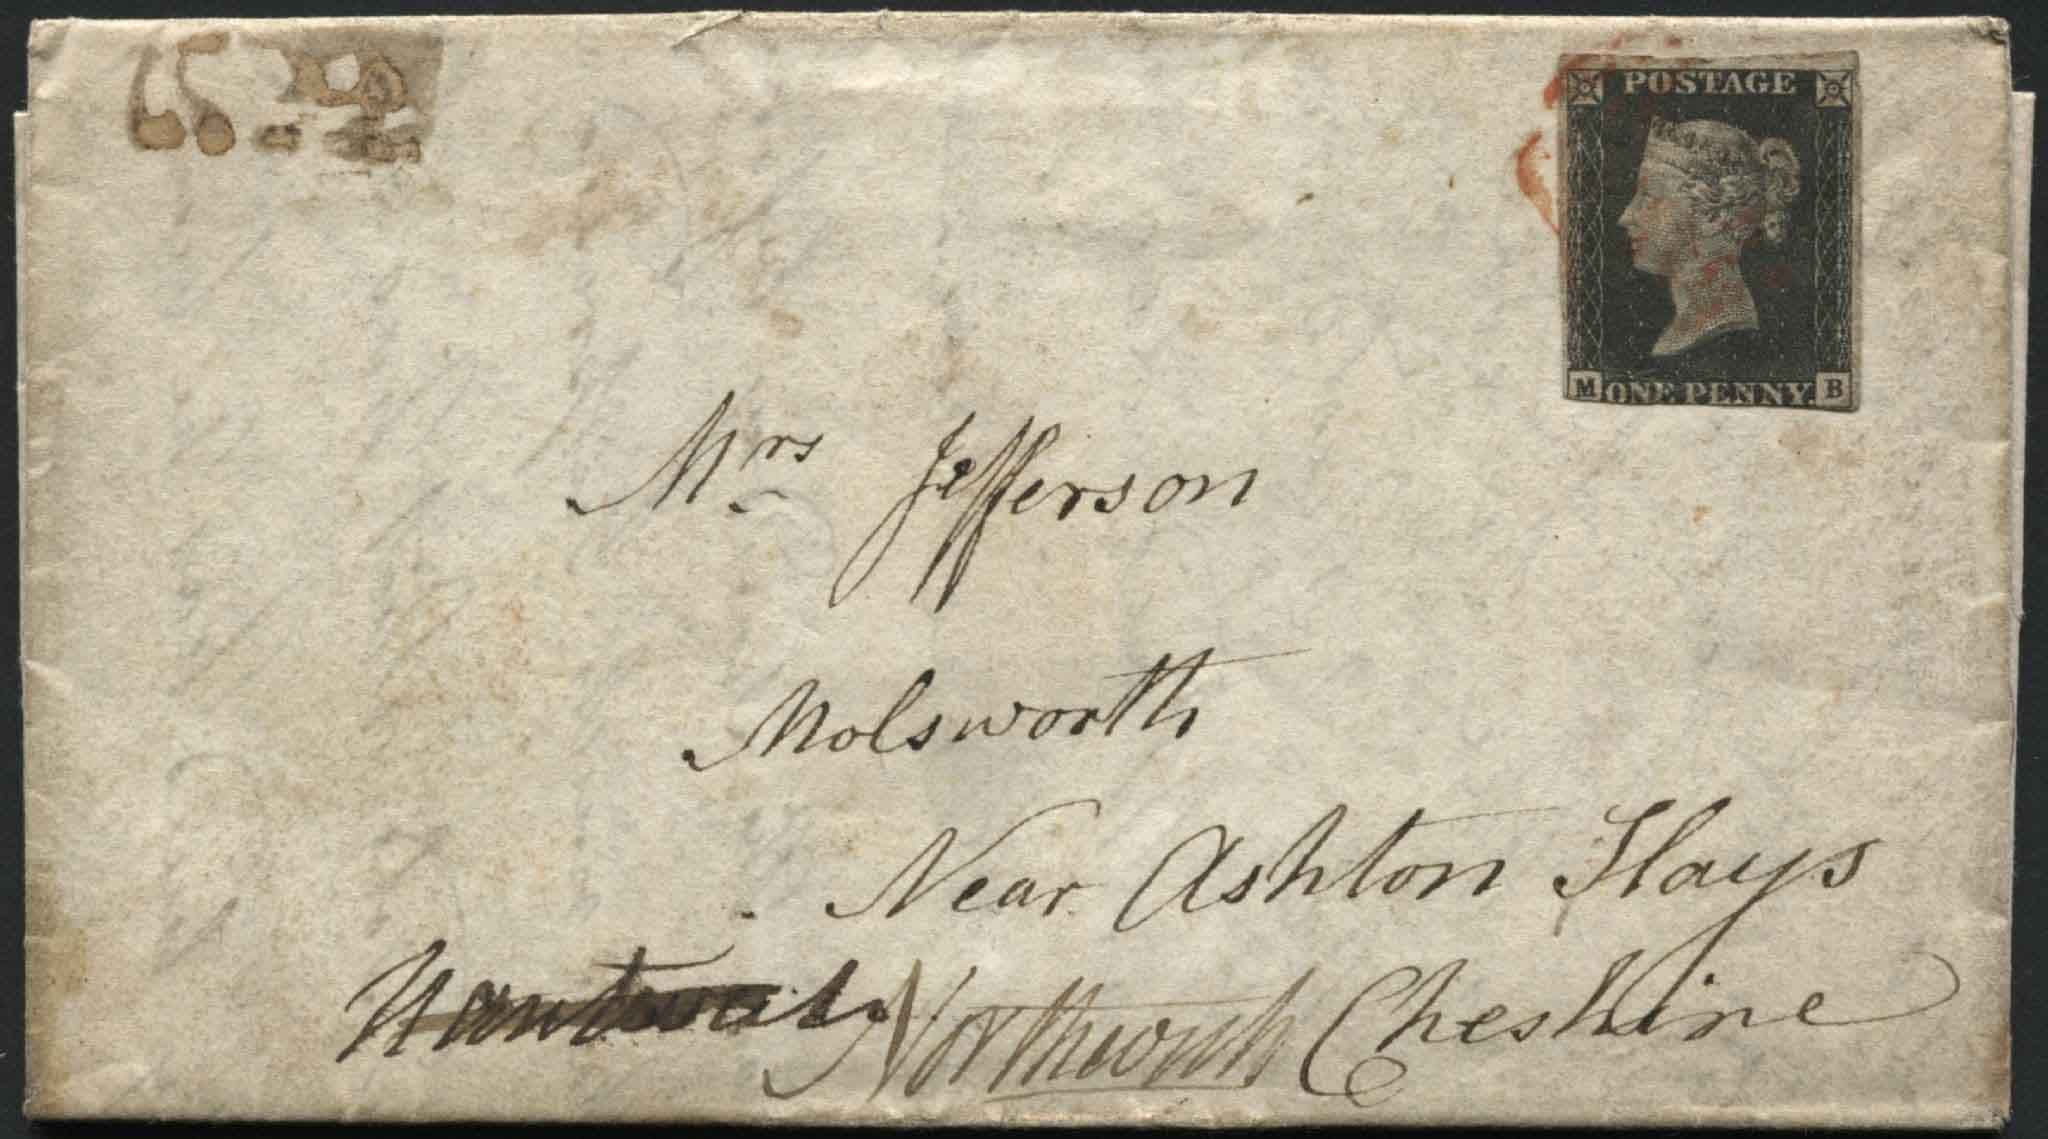 POSTAGE
M ONE PENNY. B
Mrs Jefferson
Molsworth
Near Ashton Hays
Nantwich Northwich Cheshire